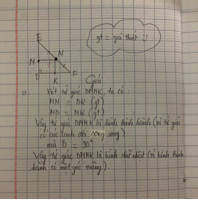 gt = giả thiết !!
E
M
N
D
K
F
Giải
Xét tứ giác DMNK, ta có:
MN = DK (gt)
MD = NK (gt)
Vậy tứ giác DMNK là hình bình hành (vì tứ giác
có các cạnh đối song song)
mà D = 90°
Vậy tứ giác DMNK là hình chữ nhật (vì hình bình
hành có một góc vuông)